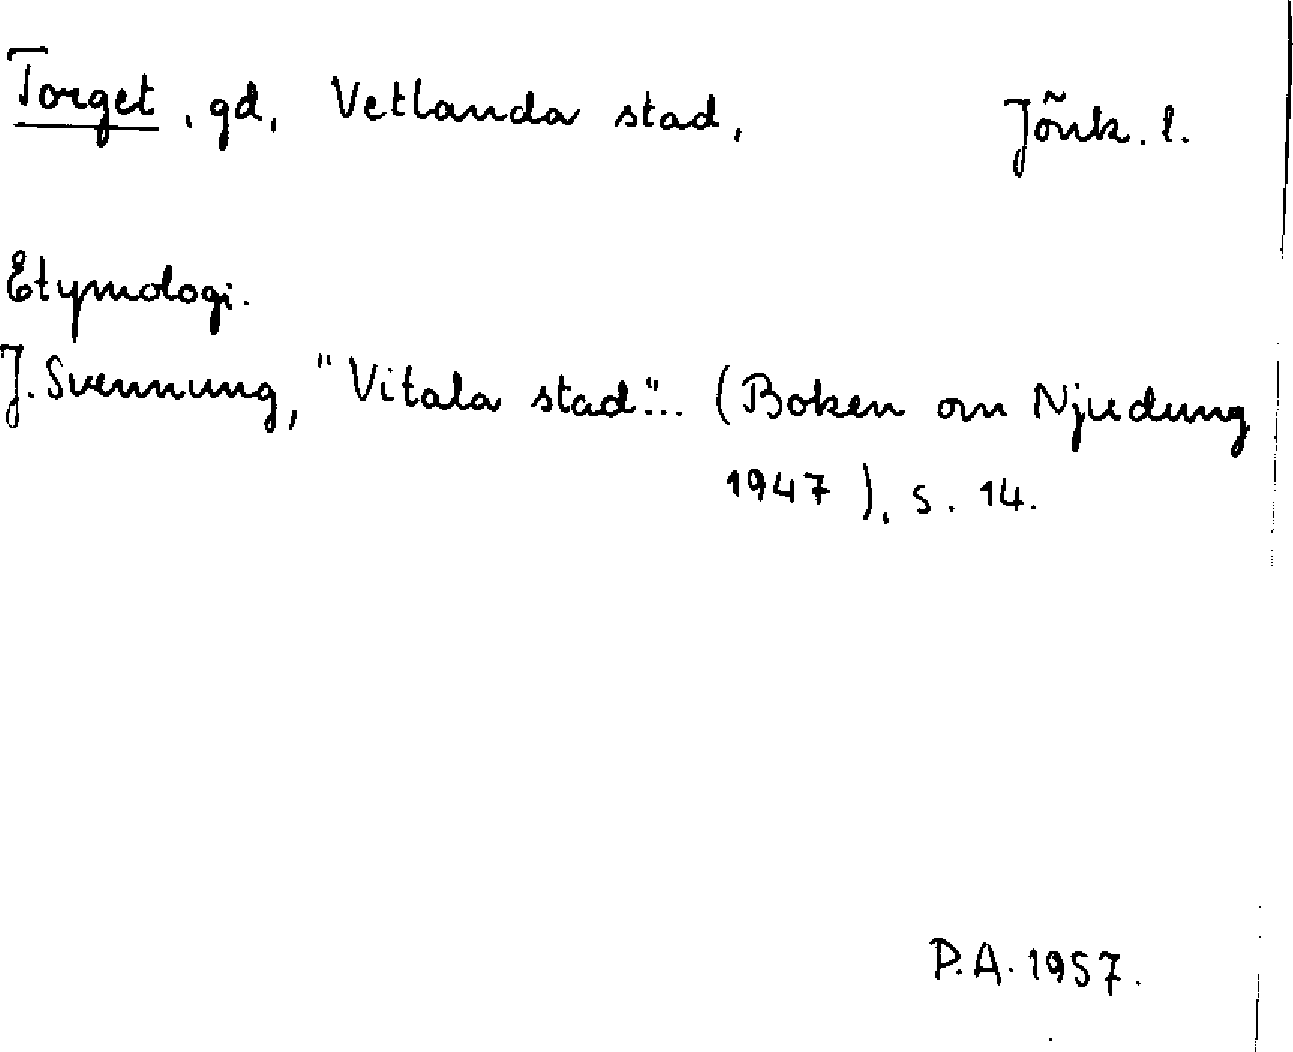 Torget, gd, Vetlanda stad, Jönk. l.
Etymologi.
J. Svennung, "Vitala stad"... (Boken om Njudung
1947), s. 14.
P.A. 1957.